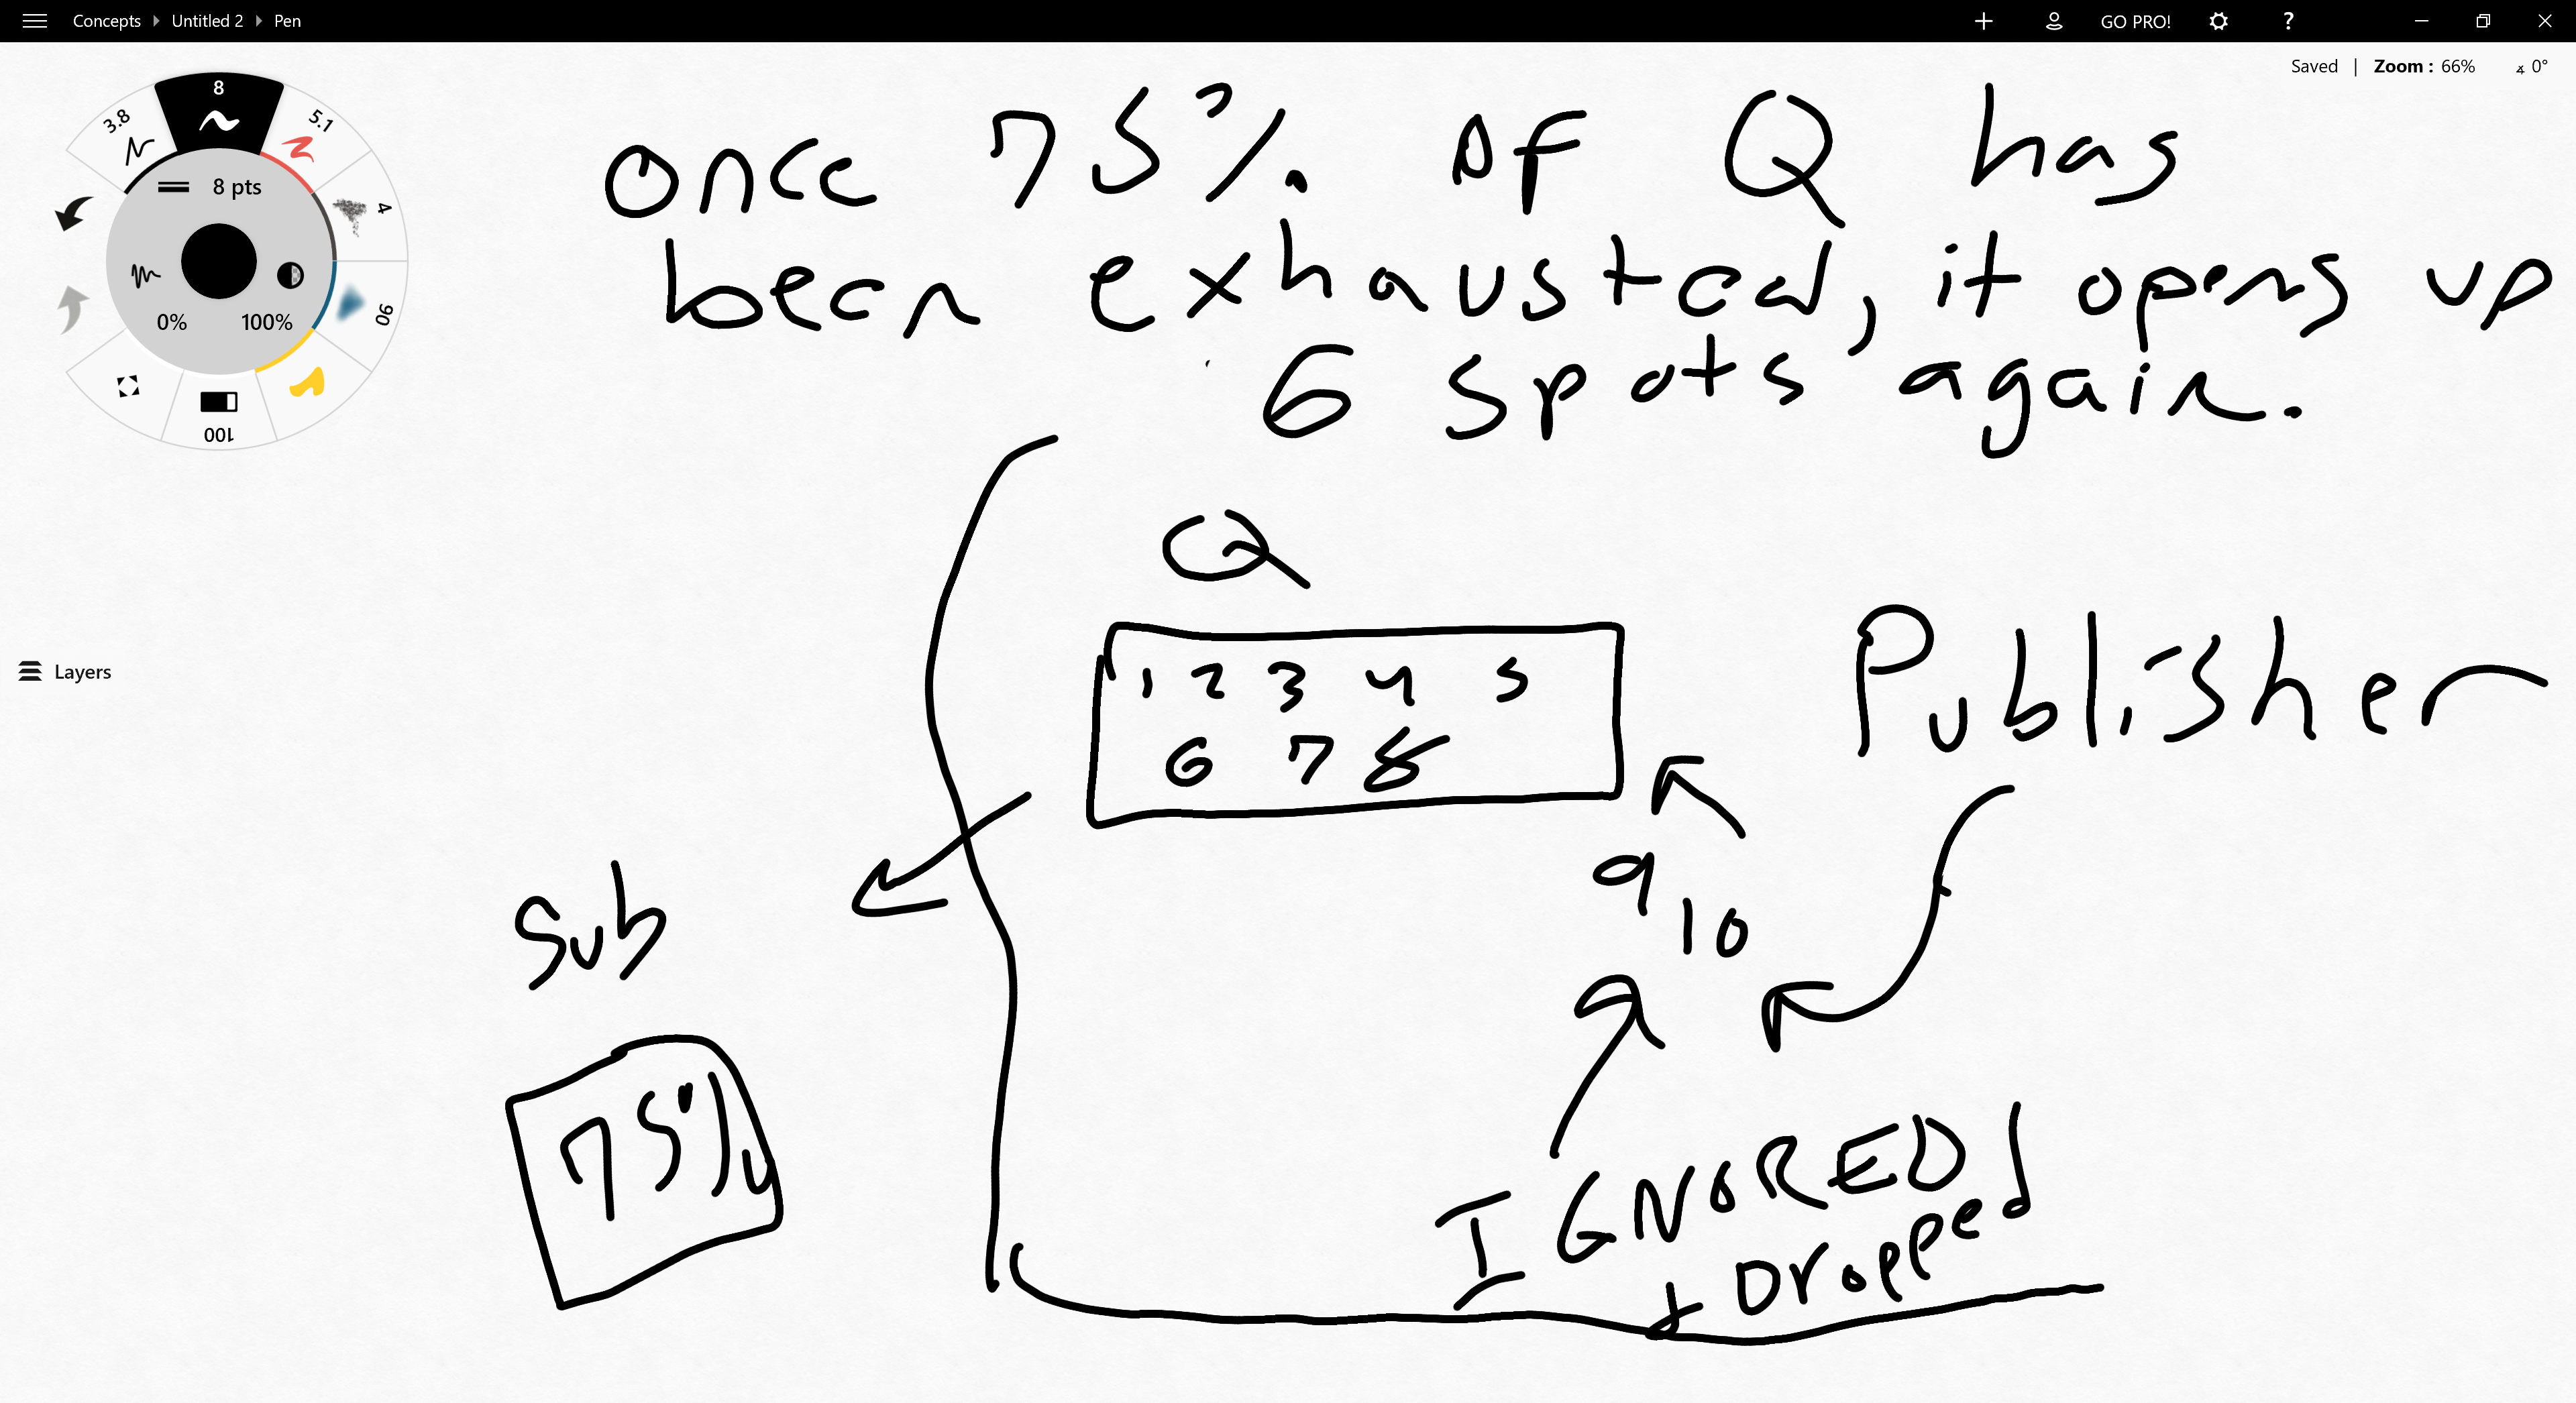 Concepts Untitled 2 Pen
GO PRO! ?
Saved | Zoom : 66% 0°
3.8
8
5.1
4
90
100
8 pts
0% 100%
Layers
once 75% of Q has
been exhausted, it opens up
6 spots again.
Q
1 2 3 4 5
6 7 8
Publisher
9
10
9
Sub
75%
IGNORED
+ Dropped